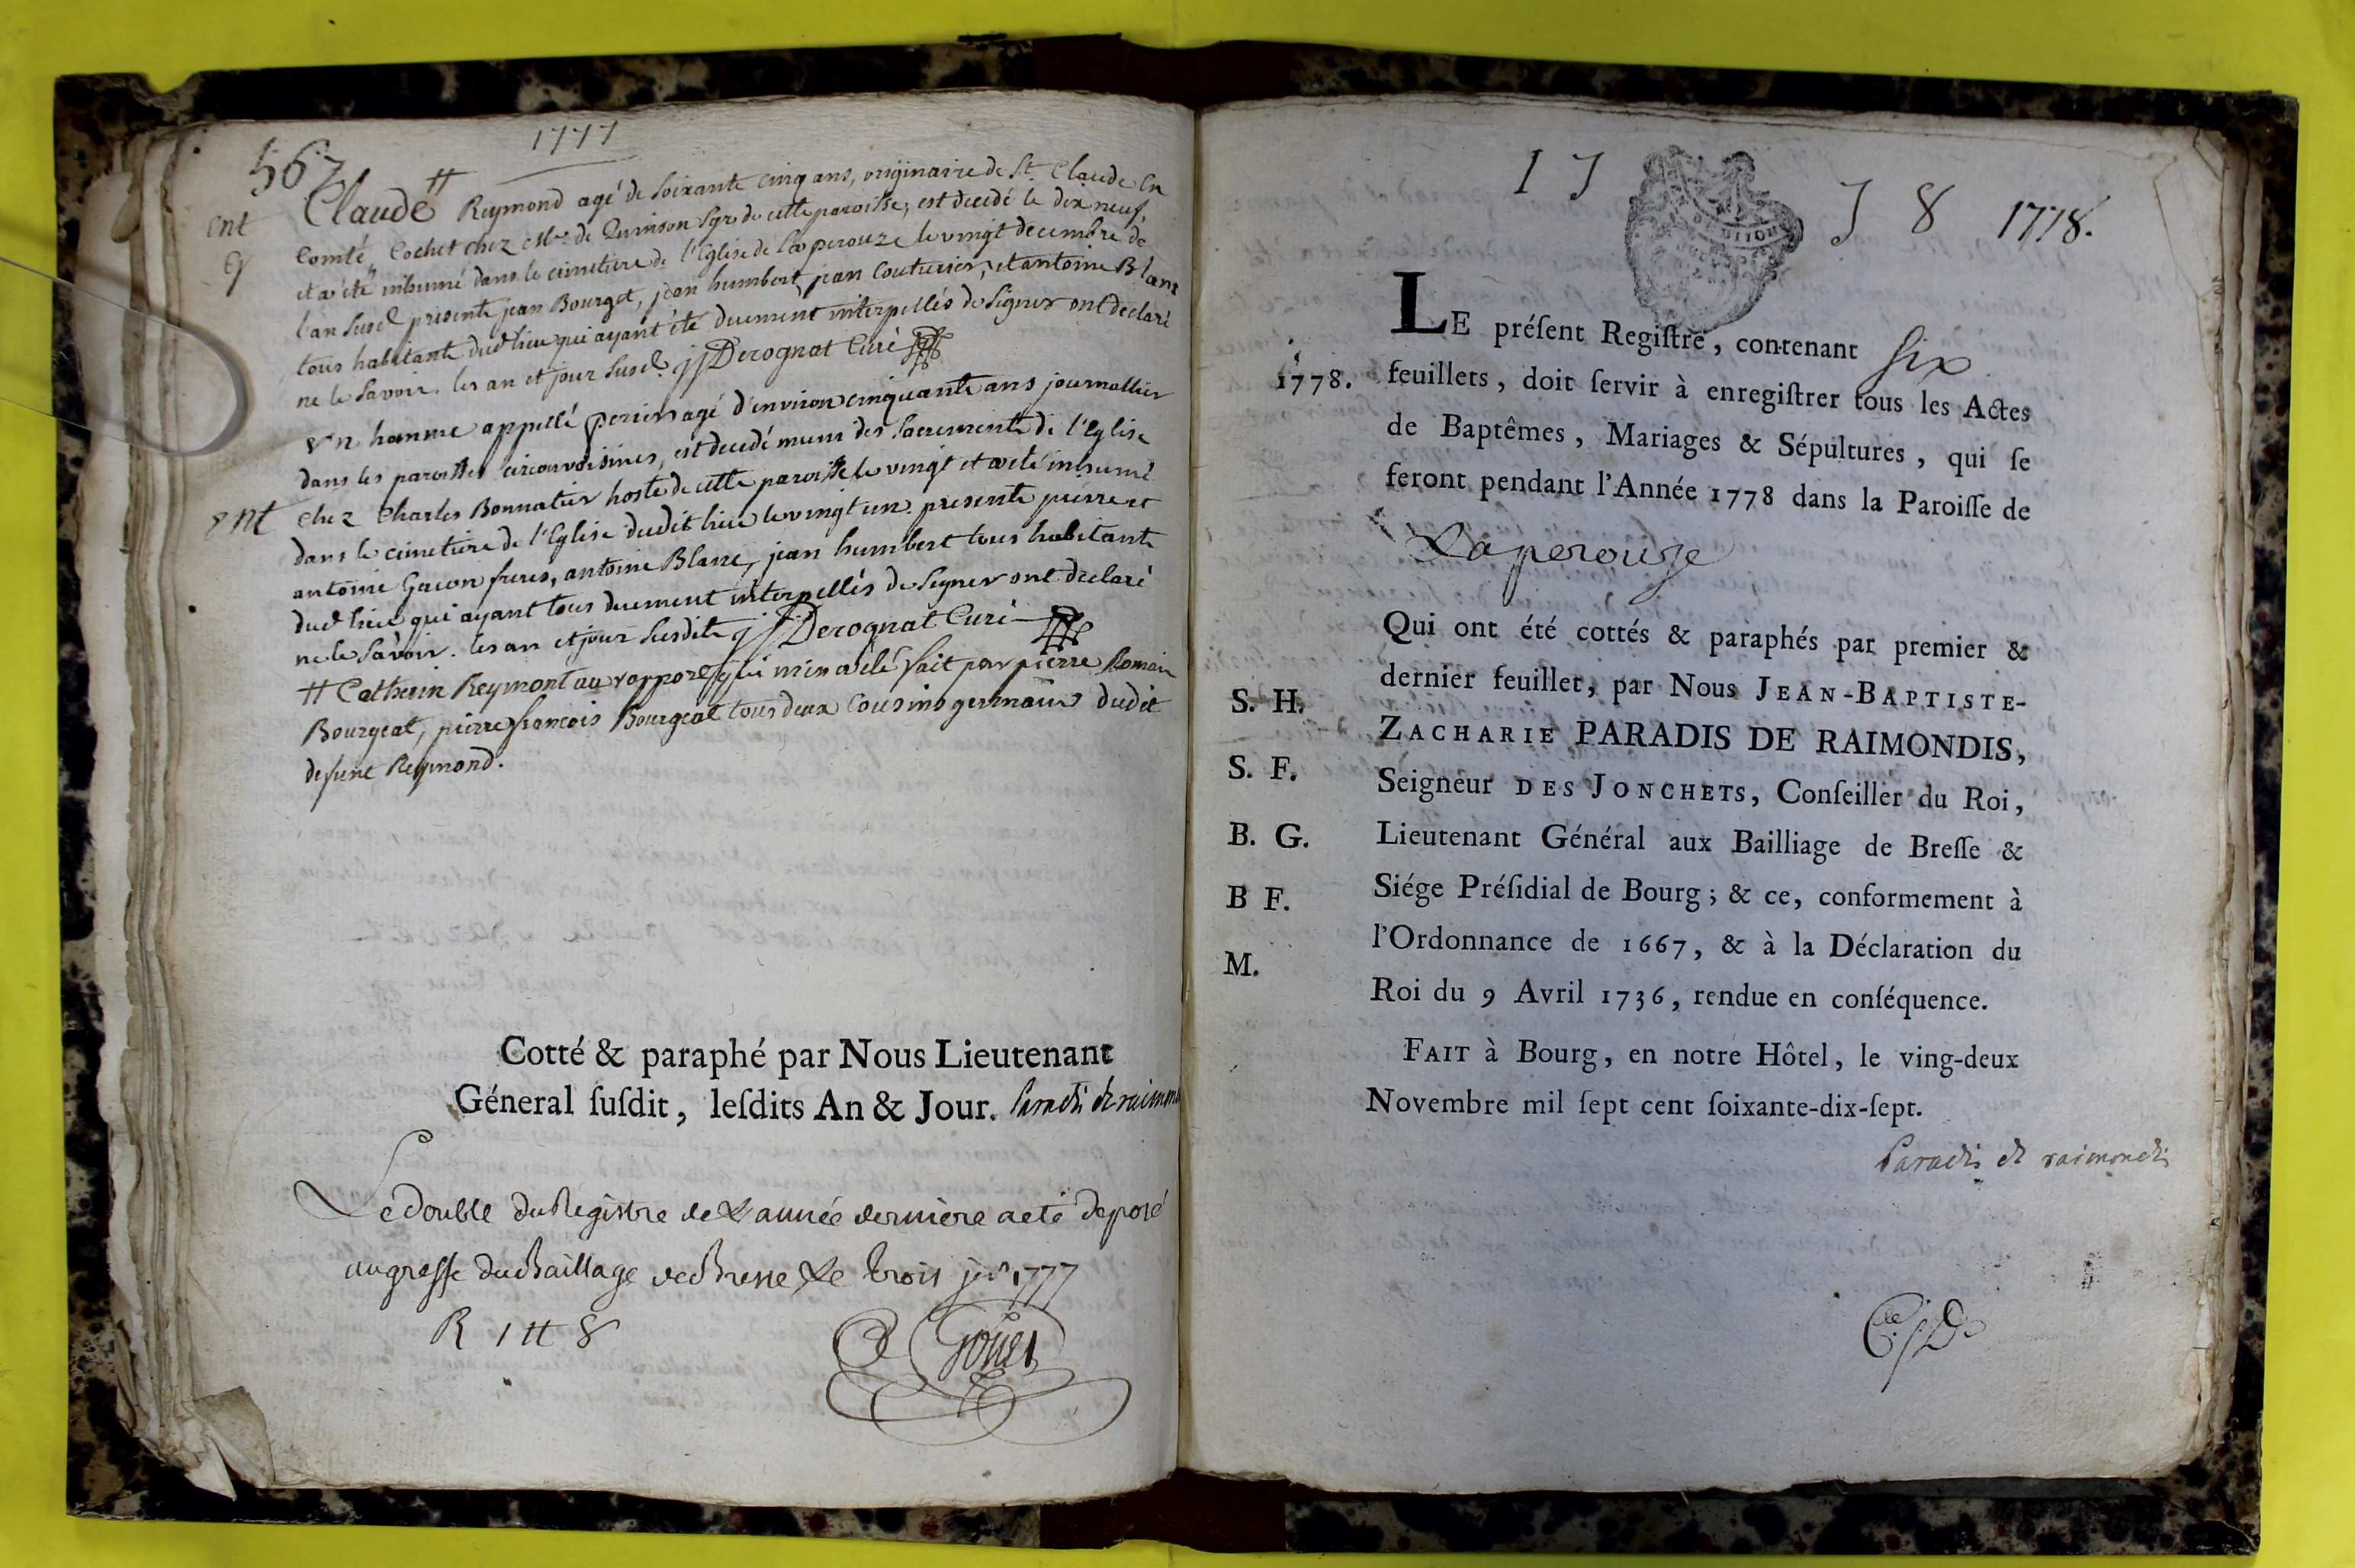 1777
567
ent
Claude # Reymond agé de soixante cinq ans, originaire de St. Claude en
Comté, Cochet chez Mr. de Quinson sgr de cette paroisse, est decedé le dix neuf,
et a été inhumé dans le cimetiere de l'Eglise de Laperouze le vingt decembre de
l'an susd presents jean Bourget, jean humbert, jean Couturier, et antoine Blanc
tous habitants dud lieu qui ayant été duement interpellés de signer ont declaré
ne le savoir. les an et jour susd. jj Derognat Curé
Un homme appellé perier agé d'environ cinquante ans journallier
dans les paroisses circonvoisines, est decedé muni des sacrements de l'Eglise
ent
chez Charles Bonnatier hoste de cette paroisse le vingt et a eté inhumé
dans le cimetiere de l'Eglise dudit lieu le vingt un. presents pierre et
antoine Gacon freres, antoine Blanc, jean humbert tous habitants
dud lieu qui ayant tous duement interpellés de signer ont declaré
ne le savoir. les an et jour susdits jj Derognat Curé
# Catherin Reymont au rapport qui m'en a eté fait par pierre Romain
Bourgeat, pierre françois Bourgeat tous deux Cousins germains dudit
defunt Reymond.
Cotté & paraphé par Nous Lieutenant
Géneral ſuſdit, leſdits An & Jour. Paradis de raimondis
Le double du Registre de L'année derniere a eté deposé
au greffe du Baillage de Bresse Le trois jer 1777
R 1 # 8
Goües
1778.
LE préſent Regiſtre, contenant six
1778.
feuillets, doit ſervir à enregiſtrer tous les Actes
de Baptêmes, Mariages & Sépultures, qui ſe
feront pendant l'Année 1778 dans la Paroiſſe de
Laperouze
Qui ont été cottés & paraphés par premier &
dernier feuillet, par Nous JEAN-BAPTISTE-
S. H.
ZACHARIE PARADIS DE RAIMONDIS,
S. F.
Seigneur DES JONCHETS, Conſeiller du Roi,
B. G.
Lieutenant Général aux Bailliage de Breſſe &
B F.
Siége Préſidial de Bourg; & ce, conformement à
l'Ordonnance de 1667, & à la Déclaration du
M.
Roi du 9 Avril 1736, rendue en conſéquence.
FAIT à Bourg, en notre Hôtel, le ving-deux
Novembre mil ſept cent ſoixante-dix-ſept.
Paradis de raimondis